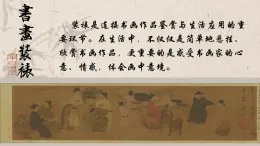 書畫裝裱
装裱是连接书画作品鉴赏与生活应用的重
要环节。在生活中，不仅仅是简单地悬挂、
欣赏书画作品，更重要的是感受书画家的心
意、情感，体会画中意境。